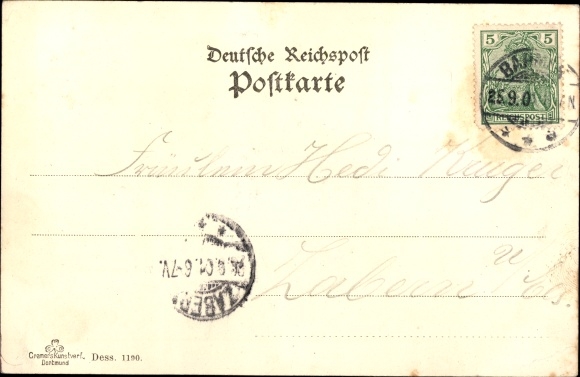 Deutsche Reichspost
Postkarte
5 5
REICHSPOST
25.9.0
Fräulein Hedi Kruger
Zabern
ZABERN
9.01.6-7V.
Cramers Kunstverl.
Dortmund
Dess. 1190.